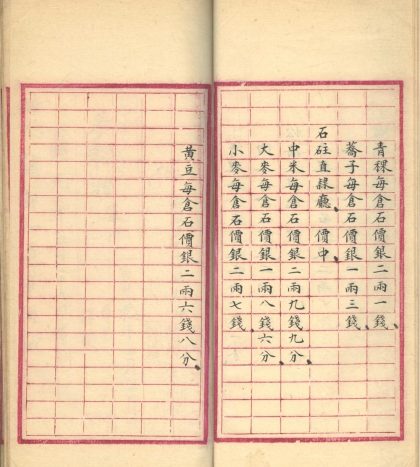 青稞每倉石價銀二兩一錢
蕎子每倉石價銀一兩三錢
石砫直隸廳　價中
中米每倉石價銀二兩九錢九分
大麥每倉石價銀一兩八錢六分
小麥每倉石價銀二兩七錢
黃豆每倉石價銀二兩六錢八分